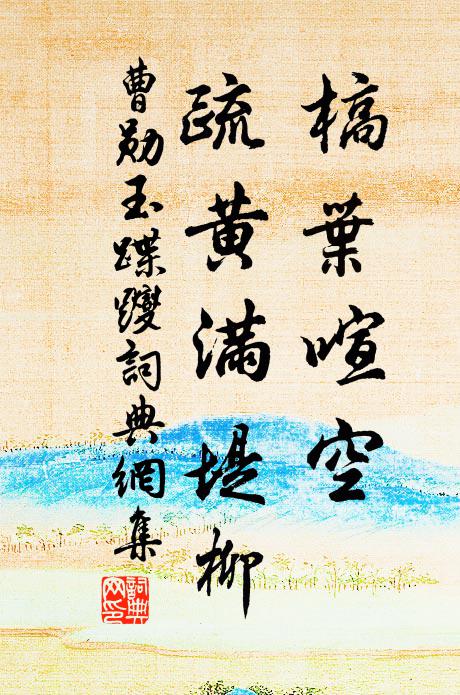 槁葉喧空
疏黃滿堤柳
曹勛玉蹀躞詞典網集
詞典网印